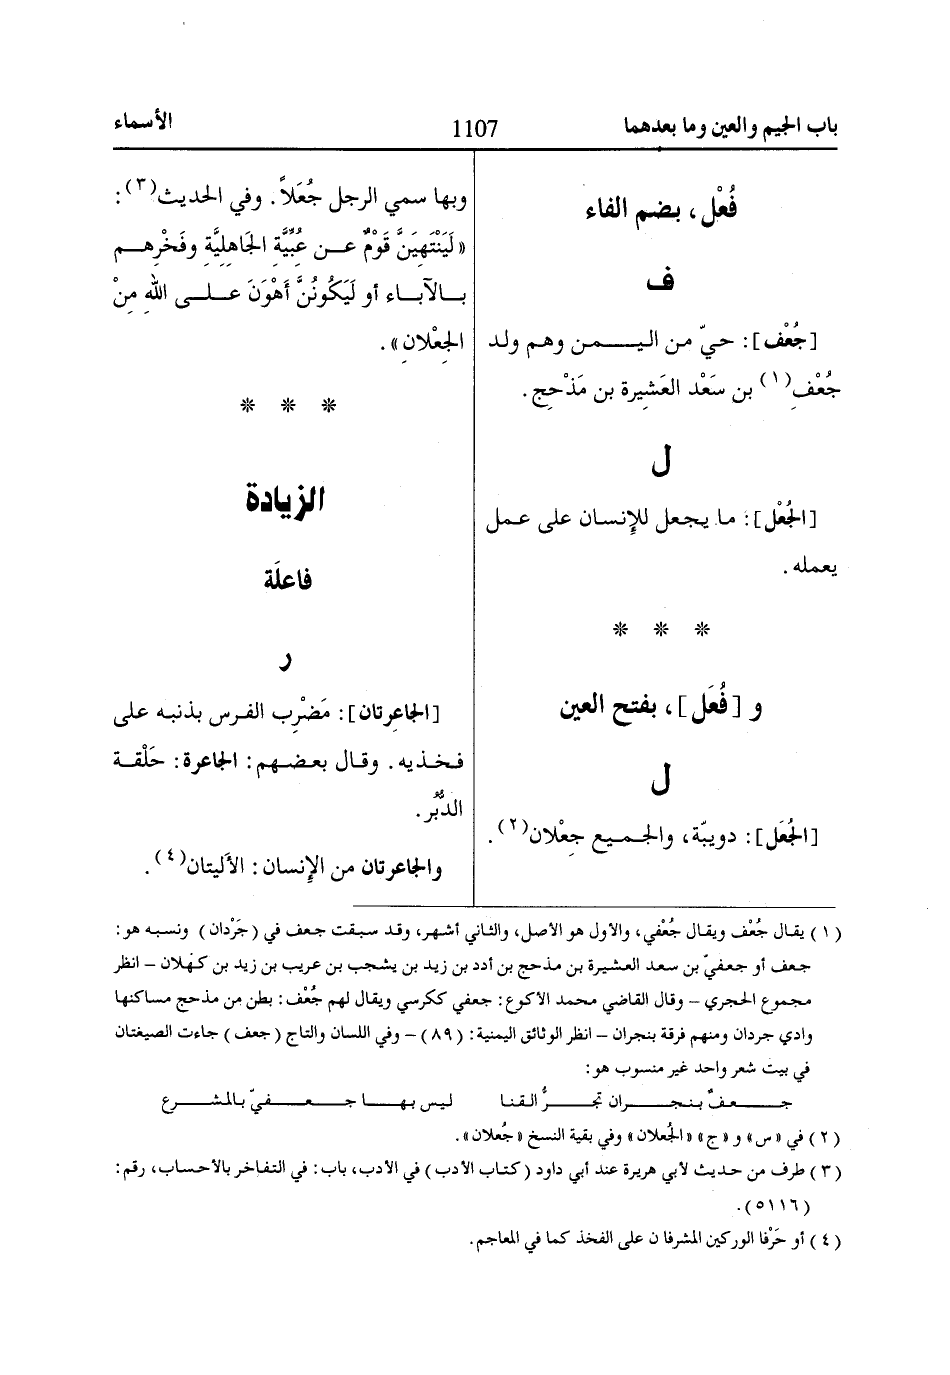 باب الجيم والعين وما بعدهما
1107
الأسماء
فُعْل، بضم الفاء
ف
[جُعْف]: حيّ من اليـــمن وهم ولد
جُعْفِ(١) بن سَعْد العَشِيرة بن مَذْحِج.
ل
[الجُعْل]: ما يجعل للإنسان على عمل
يعمله.
* * *
و [فُعَل]، بفتح العين
ل
[الجُعَل]: دويبّة، والجـميع جِعْلان(٢).
وبها سمي الرجل جُعَلاً. وفي الحديث(٣):
«لَيَنْتَهِيَنَّ قَوْمٌ عــن عُبِّيَّة الجَاهِليَّة وفَخْرِهــم
بــالآباء أو لَيَكُونُنَّ أَهْوَنَ علــى اللهِ مِنْ
الجِعْلان».
* * *
الزيادة
فاعلَة
ر
[الجاعرتان]: مَضْرِب الفرس بذنبه على
فخذيه. وقال بعضهم: الجاعرة: حَلْقة
الدُّبُر.
والجاعرتان من الإنسان: الأَليتان(٤).
(١) يقال جُعْف ويقال جُعْفي، والأول هو الأصل، والثاني أشهر، وقد سبقت جعف في (جَرْدان) ونسبه هو:
جعف أو جعفيّ بن سعد العشيرة بن مذحج بن أدد بن زيد بن يشجب بن عريب بن زيد بن كهلان – انظر
مجموع الحجري – وقال القاضي محمد الأكوع: جعفي ككرسي ويقال لهم جُعْف: بطن من مذحج مساكنها
وادي جردان ومنهم فرقة بنجران – انظر الوثائق اليمنية: (٨٩) – وفي اللسان والتاج (جعف) جاءت الصيغتان
في بيت شعر واحد غير منسوب هو:
جـــعـفٌ بـنـجــران تجــرُّ الـقنا ليس بـهــا جـــعــفيّ بـالمـشــرع
(٢) في «س» و «ج» «الجُعلان» وفي بقية النسخ «جُعلان».
(٣) طرف من حديث لأبي هريرة عند أبي داود (كتاب الأدب) في الأدب، باب: في التفاخر بالأحساب، رقم:
(٥١١٦).
(٤) أو حَرْفا الوركين المشرفان على الفخذ كما في المعاجم.